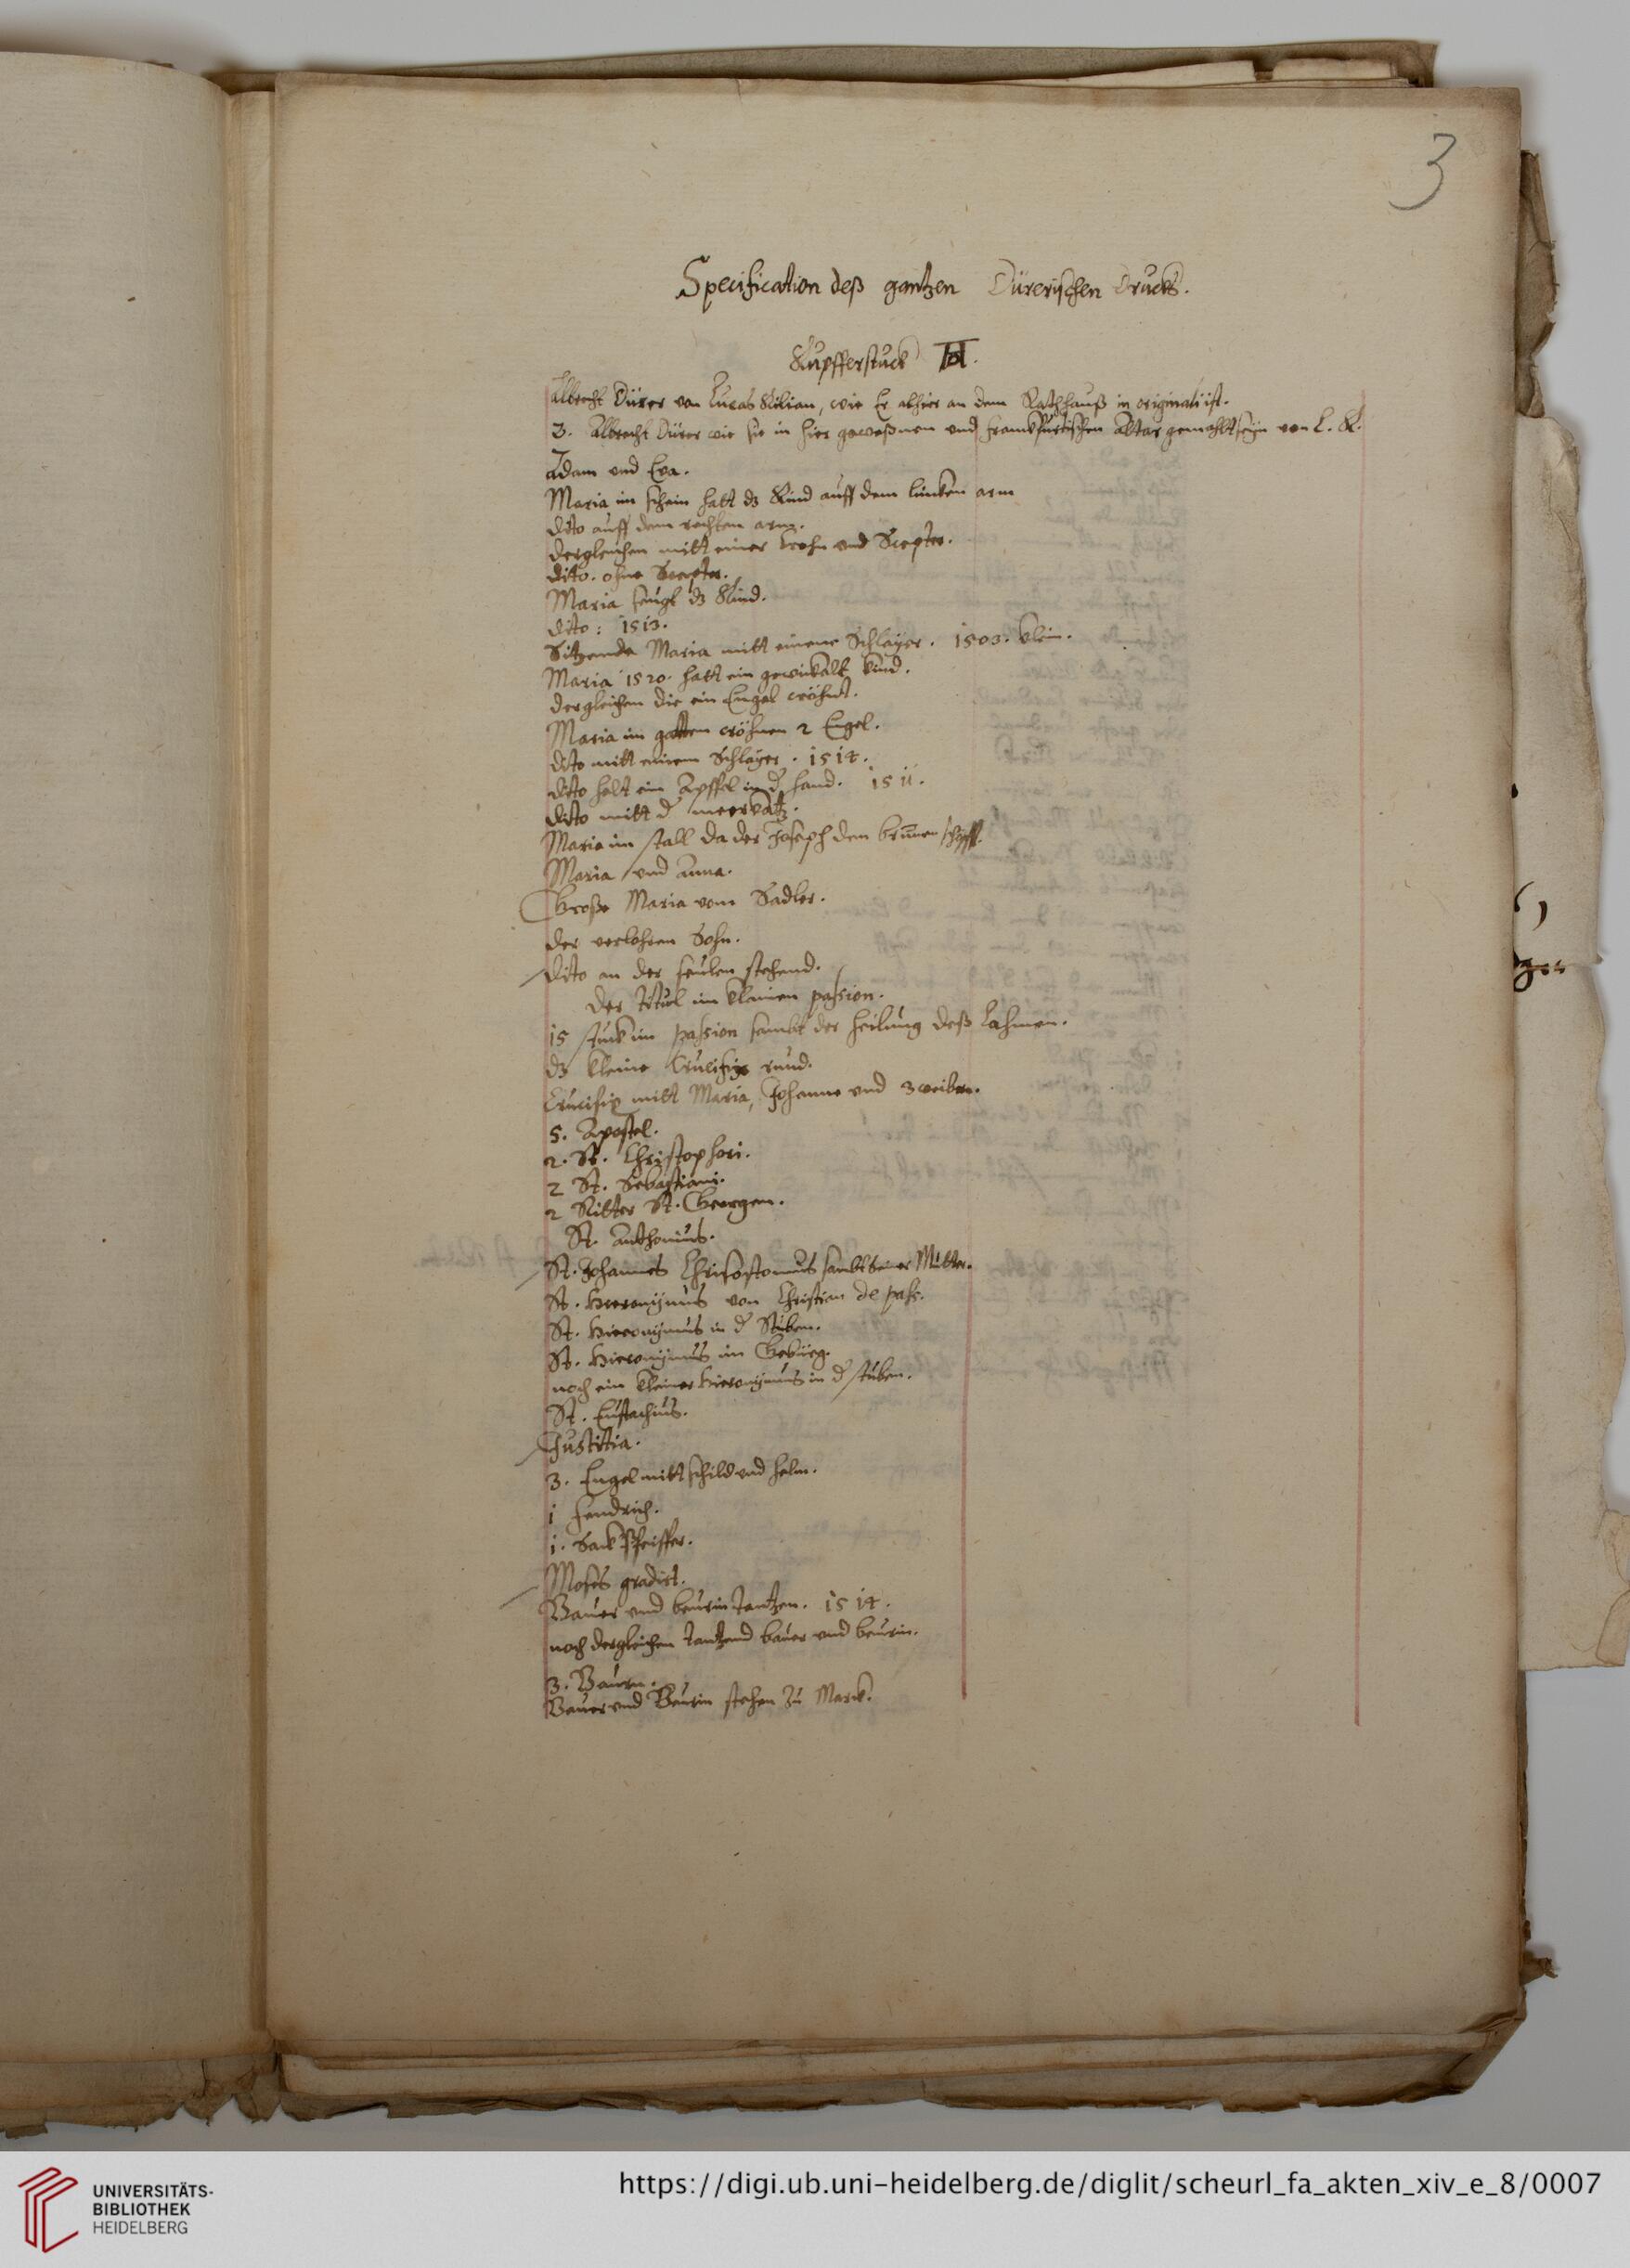 3
Specification deß gantzen Dürerischen Drucks.
Kupfferstuck AD.
Albrecht Dürer von Lucas Kilian, wie Er alhier an dem Rathhauß in originali ist.
3. Albrecht Dürer wie sie in hier geweßnen und Franckfurtischen Altar gemahlt seyn von L. K.
Adam und Eva.
Maria im schein hatt dz Kind auff dem lincken arm
dito auff dem rechten arm.
dergleichen mitt einer Crohn und Scepter.
dito. ohne Scepter.
Maria seugt dz Kind.
ditto: 1513.
Sitzende Maria mitt einem Schlayer. 1503. klein.
Maria 1520. hatt ein gewickelt kind.
dergleichen die ein Engel cröhnt.
Maria im garten cröhnen 2 Engel.
dito mitt einem Schlayer. 1514.
ditto helt ein Apffel in der hand. 1511.
ditto mitt der meerkatz.
Maria im stall da der Joseph den brunnen schöpfft.
Maria und Anna.
Große Maria vom Sadler.
der verlohren Sohn.
dito an der seulen stehend.
der Titul im kleinen passion.
15 stuck im passion sambt der heilung deß Lahmen.
dz kleine Crucifix rund.
Crucifix mitt Maria, Johanne und 3 weibern.
5. Apostel.
2. St. Christophori.
2 St. Sebastiani.
2 Ritter St. Georgen.
St. Anthonius.
St. Johannes Chrisostomus sambt seiner Mutter.
St. Hieronymus von Christian de pass.
St. Hieronymus in der Stuben.
St. Hieronymus im Gebürg.
noch ein kleiner Hieronymus in der stuben.
St. Eustachius.
Justitia.
3. Engel mitt schild und helm.
1 Fendrich.
1. Sack Pfeiffer.
Moses gradirt.
Bauer und beurin tantzen. 1514.
noch dergleichen tantzend bauer und beurin.
3. Bauern.
Bauer und Beurin stehen zu Marck.
UNIVERSITÄTS-
BIBLIOTHEK
HEIDELBERG
https://digi.ub.uni-heidelberg.de/diglit/scheurl_fa_akten_xiv_e_8/0007